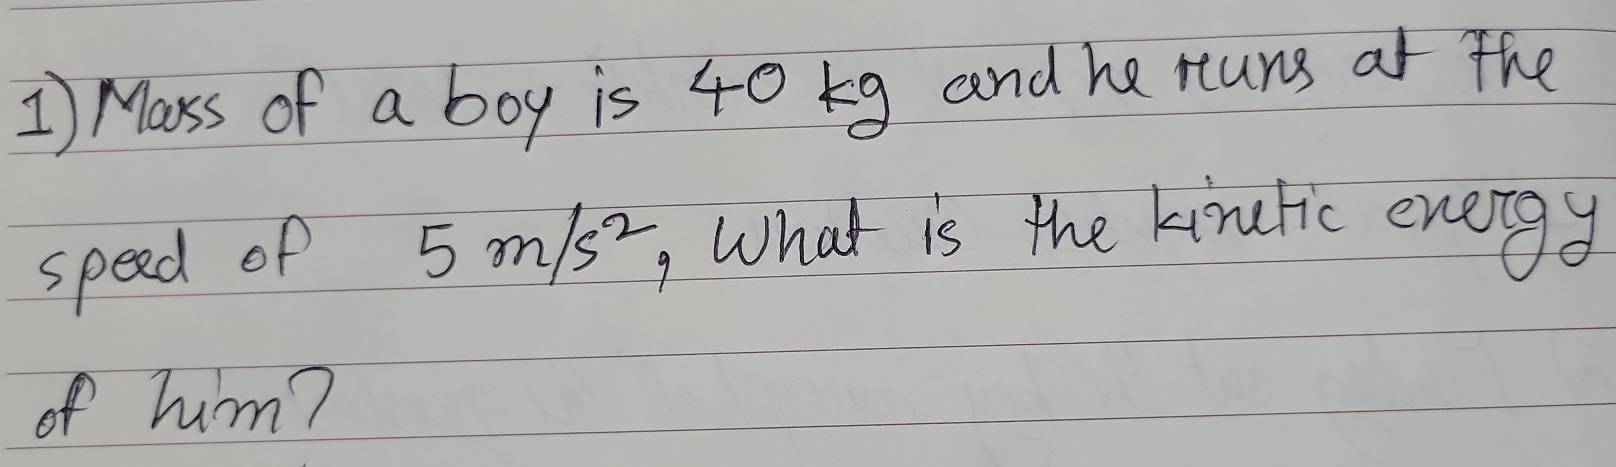 1) Mass of a boy is 40 kg and he runs at the
speed of 5 m/s², What is the kinetic energy
of him?